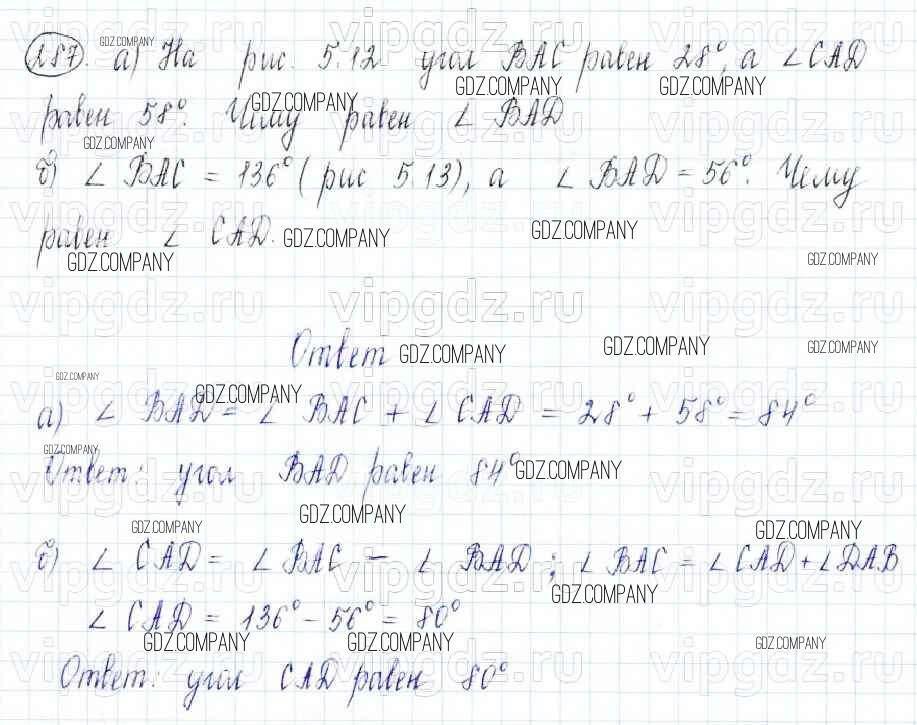 287. а) На рис. 5.12 угол BAC равен 28°, а ∠CAD
равен 58°. Чему равен ∠ BAD
б) ∠ BAC = 136° ( рис 5.13), а ∠ BAD = 56°. Чему
равен ∠ CAD.
Ответ
а) ∠ BAD = ∠ BAC + ∠ CAD = 28° + 58° = 84°
Ответ: угол BAD равен 84°
б) ∠ CAD = ∠ BAC — ∠ BAD ; ∠ BAC = ∠ CAD + ∠ DAB
∠ CAD = 136° – 56° = 80°
Ответ: угол CAD равен 80°